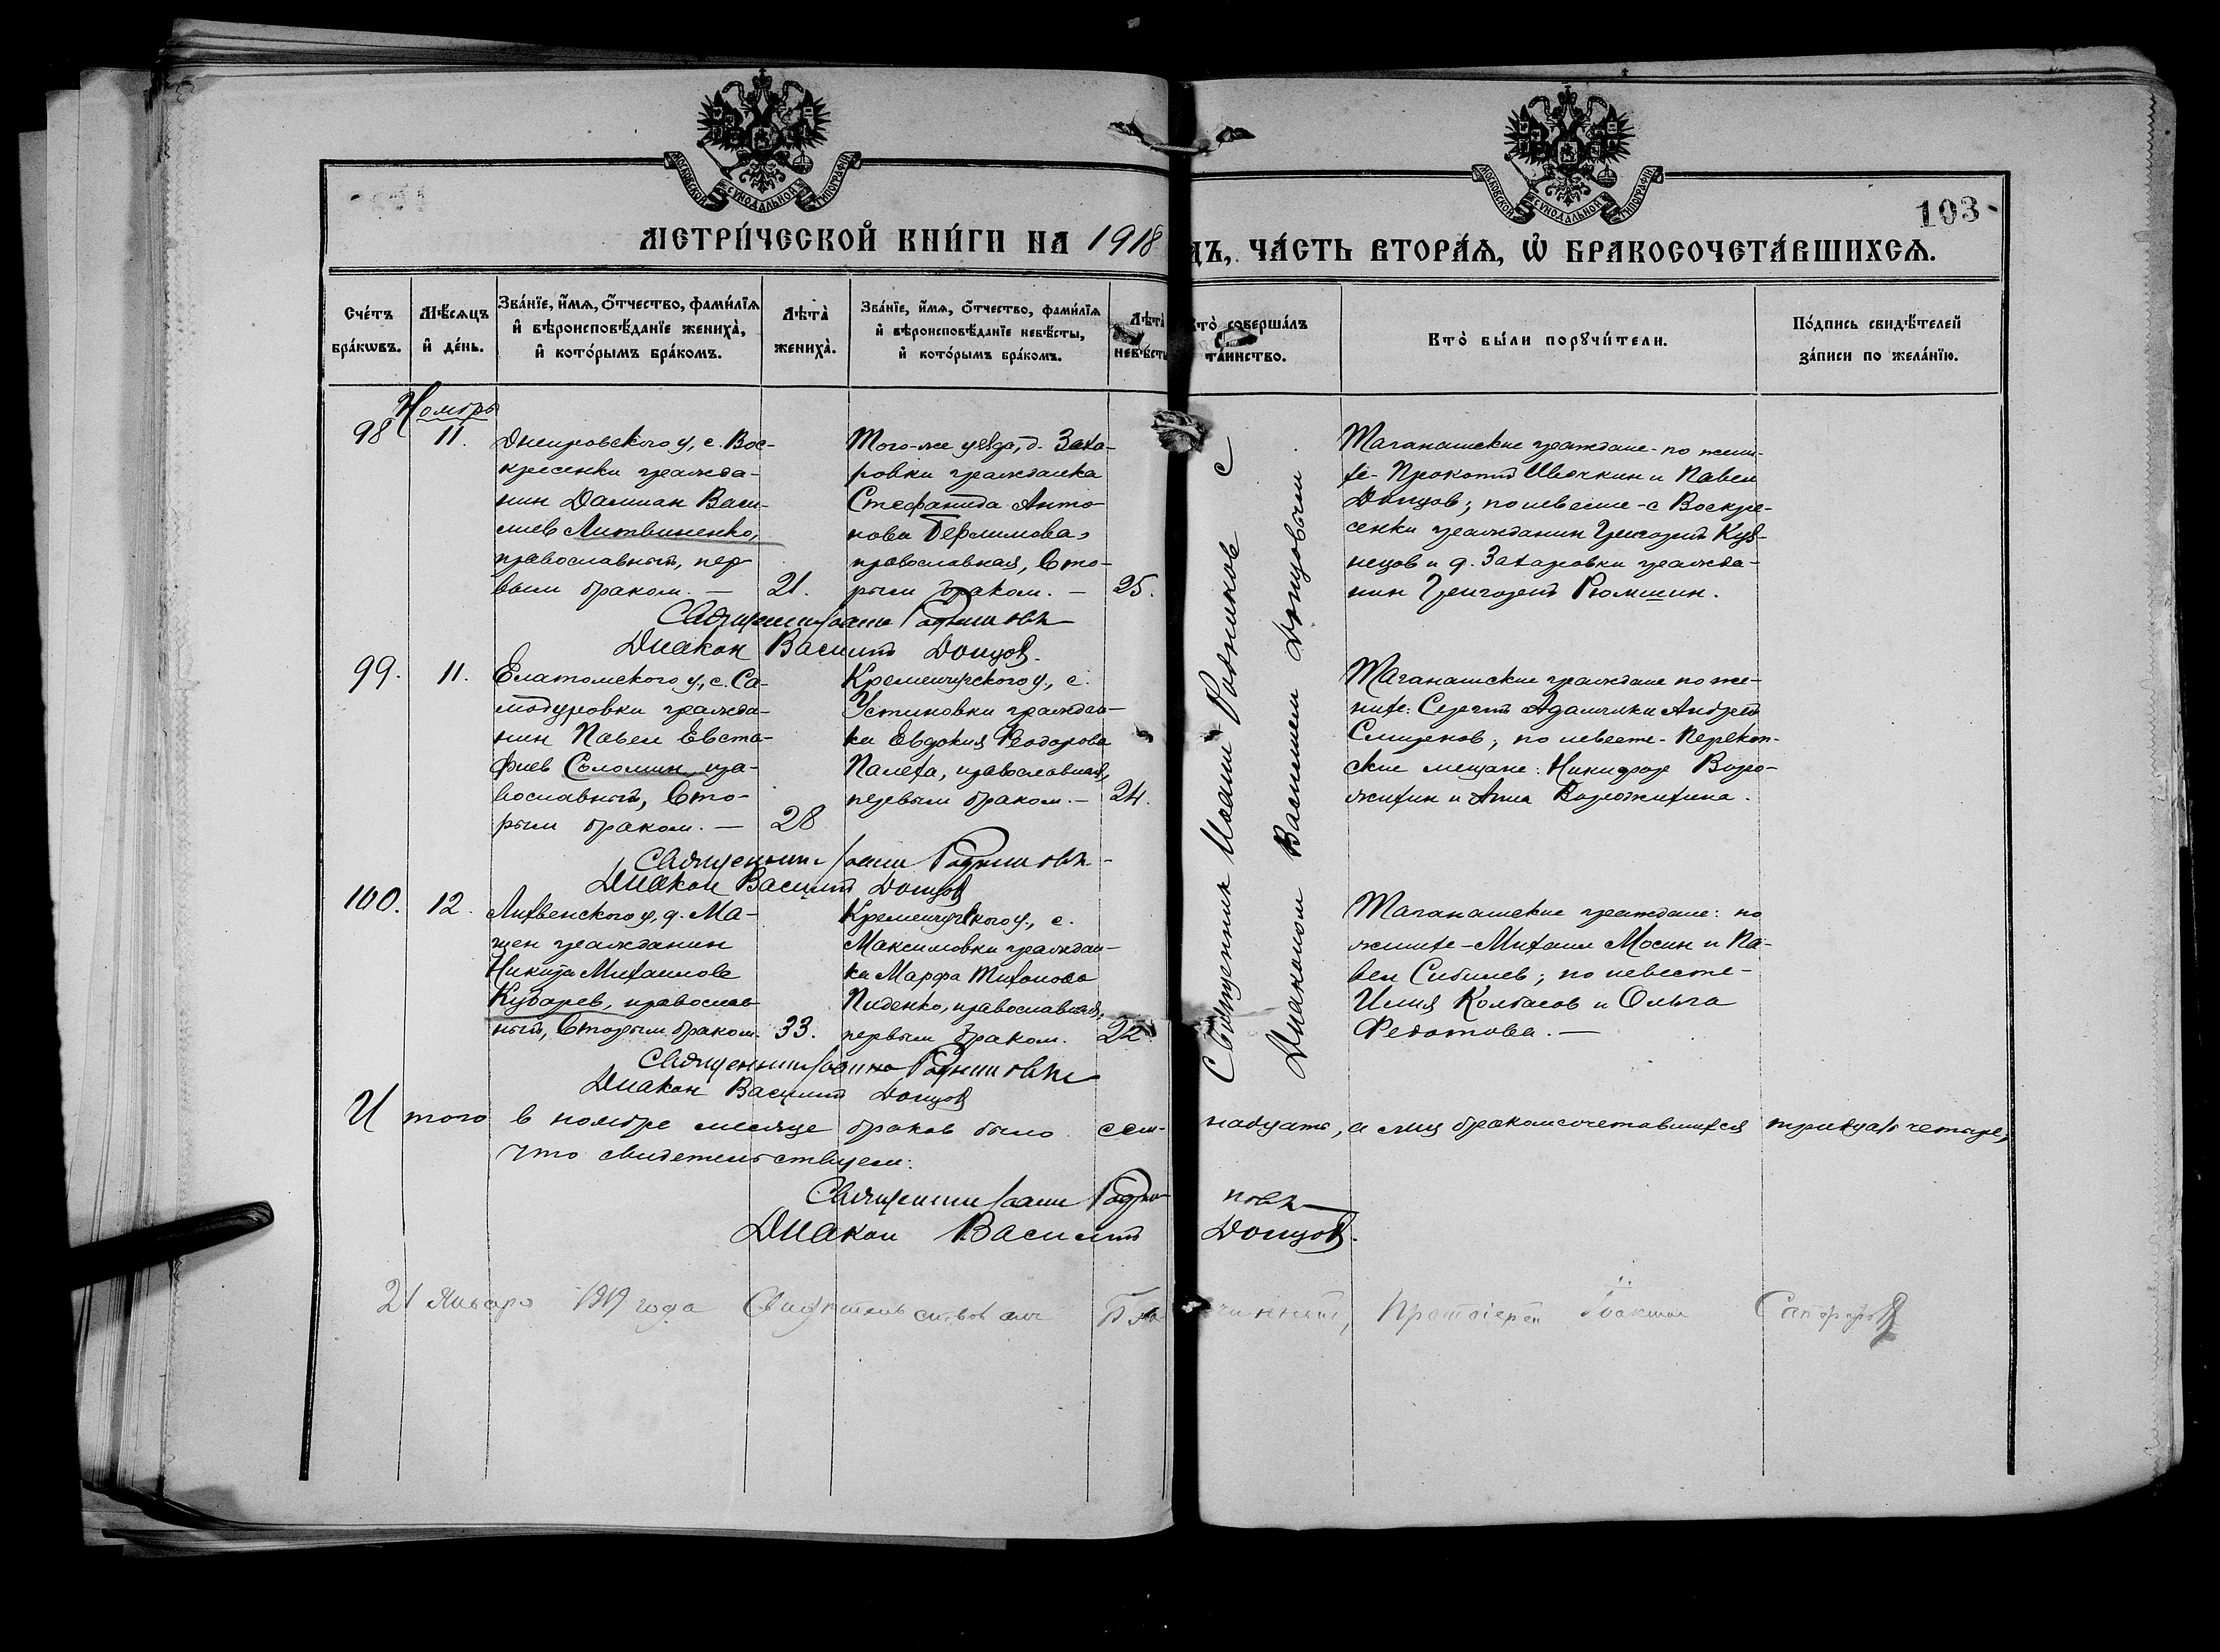 МОСКОВСКОЙ СѴНОДАЛЬНОЙ ТИПОГРАФІИ
МОСКОВСКОЙ СѴНОДАЛЬНОЙ ТИПОГРАФІИ
103
МЕТРИ́ЧЕСКОЙ КНИ́ГИ НА 1918
ДЪ, ЧА́СТЬ ВТОРА́Я, Ѡ БРАКОСОЧЕТА́ВШИХСЯ.
Сче́тъ бра́кѡвъ.
Мѣ́сяцъ и де́нь.
Зва́нїе, и́мя, о́тчество, фами́лїя и вѣроисповѣ́данїе жениха̀, и кото́рымъ бра́комъ.
Лѣта̀ жениха̀.
Зва́нїе, и́мя, о́тчество, фами́лїя и вѣроисповѣ́данїе невѣ́сты, и кото́рымъ бра́комъ.
Лѣта̀ невѣсты
Кто̀ соверша́лъ та́инство.
Кто̀ бы́ли порꙋчи́тели.
По́дпись свидѣ́телей за́писи по жела́нїю.
Ноябрь
98
11.
Днепровского у, с. Вос-
кресенки гражда-
нин Дамиан Васи-
лиев Литвиненко,
православный, пер
вым браком. —
21.
Того-же уезда, д. Заха-
ровки гражданка
Стефанида Анто-
нова
православная, вто-
рым браком. —
25.
Таганашские граждане - по жени-
хе - Прокопий Ивочкин и Павел
Донцов; по невесте - с Воскре-
сенки гражданин Григорий Куз-
нецов и д. Захаровки гражда-
нин Григорий Рюмшин.
Священник Иоанн Родников с
Диаконом Василием Донцовым
Священник Иоанн Родников
Диакон Василий Донцов.
99.
11.
Елатомского у, с. Са-
модуровки гражда-
нин Павел Евста-
фиев Соломин, пра-
вославный, вто-
рым браком. —
28
Кременчугского у, с.
Устиновки граждан-
ка Евдокия Феодорова
Палеха, православная,
первым браком. —
24.
Таганашские граждане по же-
нихе: Сергий Адамчик и Андрей
по невесте - Перекоп-
ские мещане: Никифор Воро-
жихин и Анна Ворожихина.
Священник Иоанн Родников
Диакон Василий Донцов
100.
12.
у, д. Ма-
гражданин
Никита Михаилов
Кубарев, православ
ный, вторым браком.
33.
Кременчугского у, с.
Максимовки граждан-
ка Марфа Тихонова
Пиденко, православная,
первым браком.
22
Таганашские граждане: по
женихе - Михаил Мосин и Па-
вел Сибилев; по невесте -
Илия Колбасов и Ольга
Федотова. —
Священник Иоанн Родников
Диакон Василий Донцов
Итого в ноябре месяце браков было семнадцать, а лиц бракомсочетавшихся тридцать четыре,
что свидетельствуем:
Священник Иоанн Родников
Диакон Василий Донцов.
21 Января 1919 года Свидетельствовал Благочинный, Протоіерей